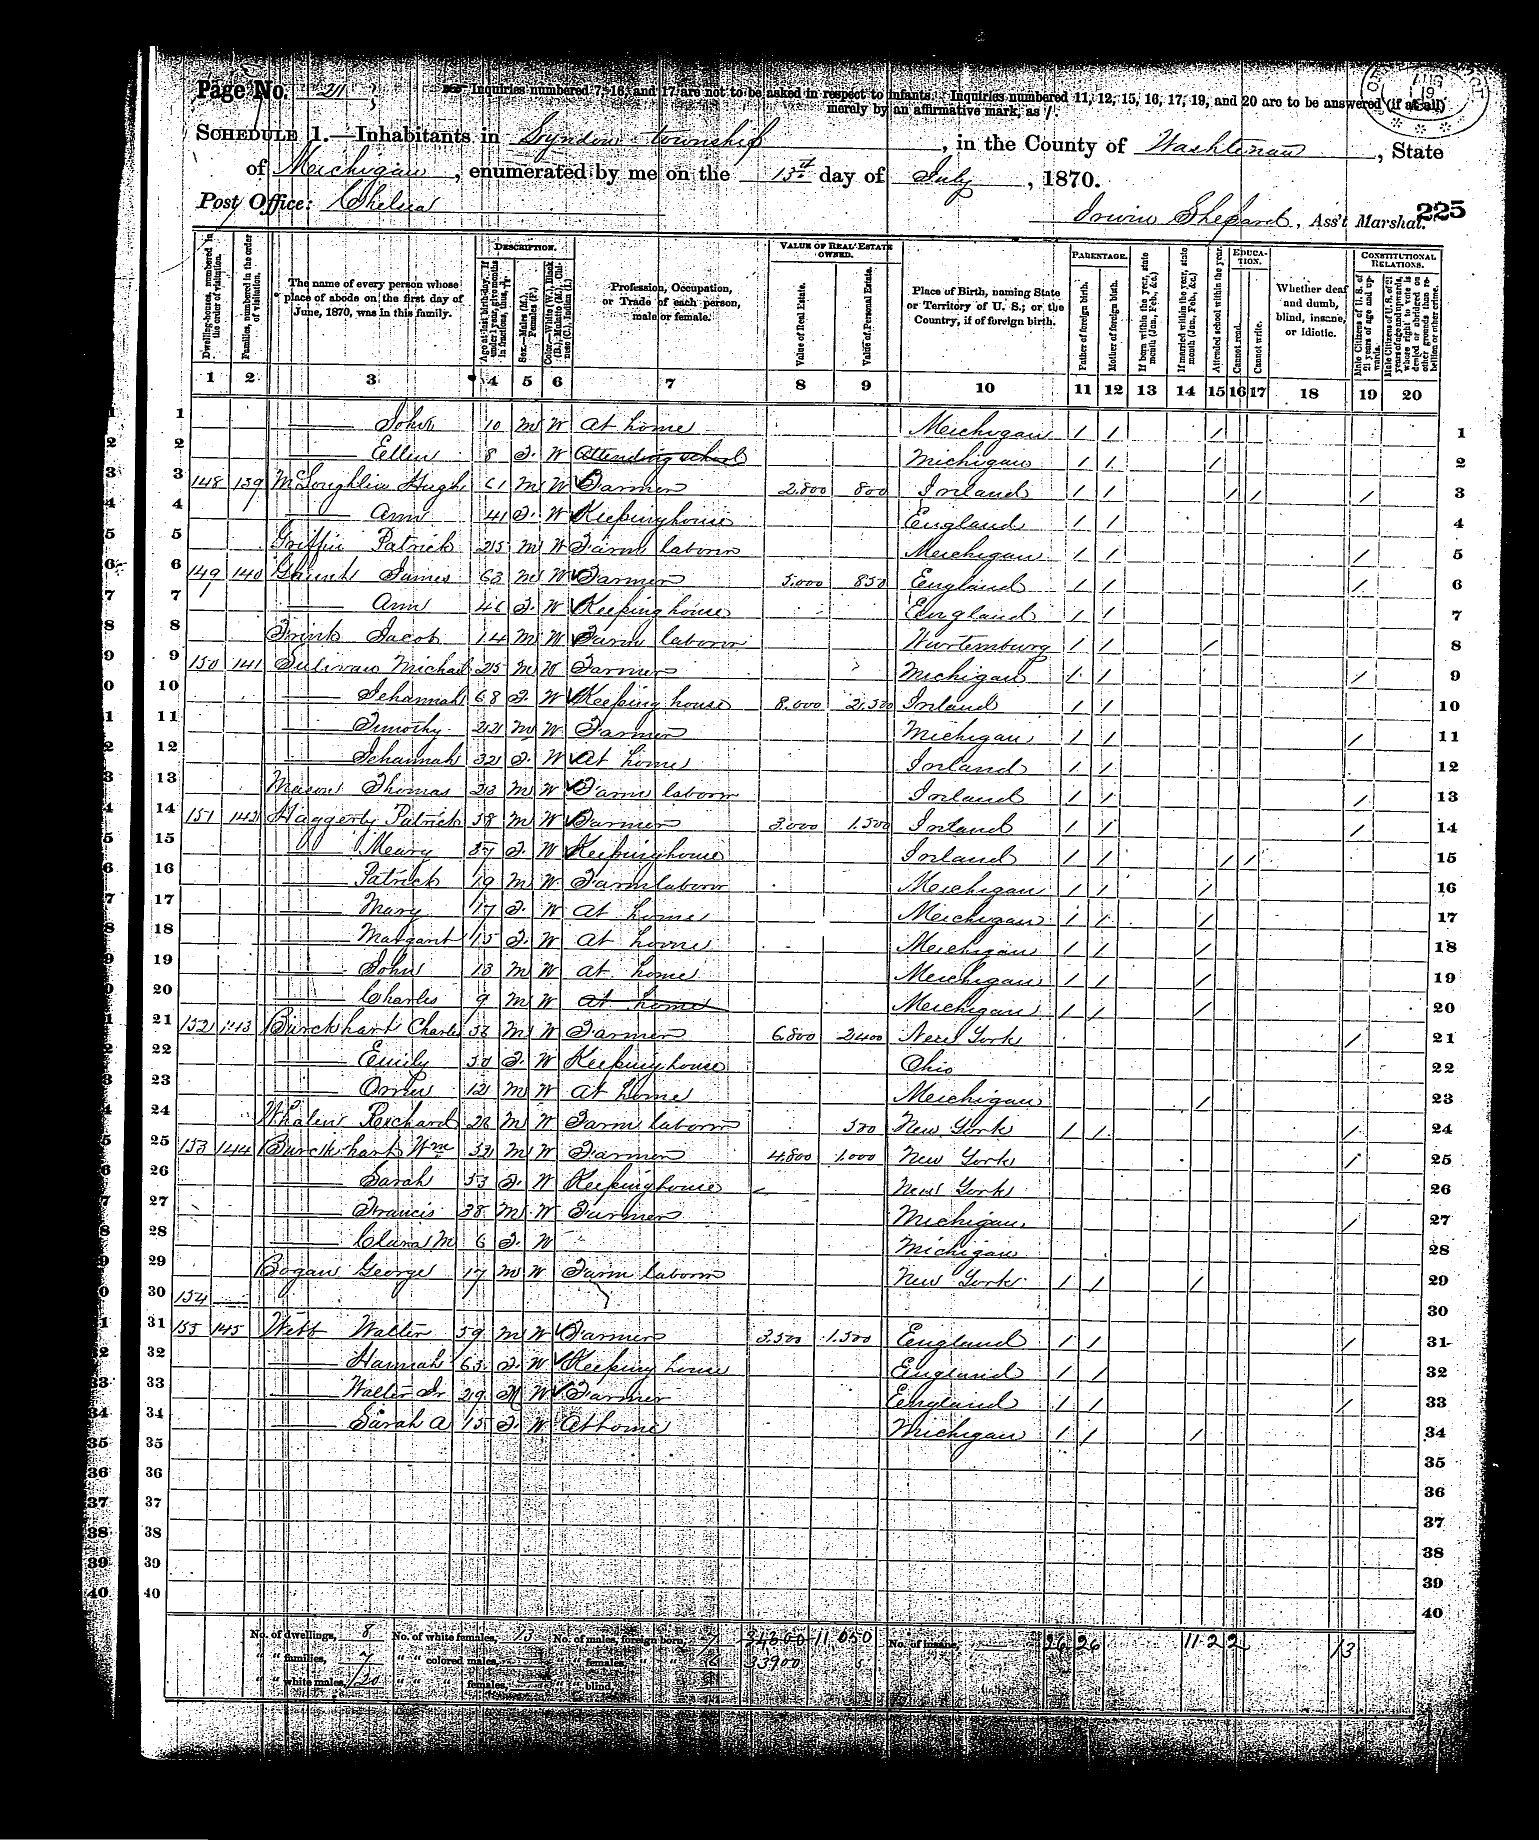 Page No. 21
Inquiries numbered 7, 16, and 17 are not to be asked in respect to infants. Inquiries numbered 11, 12, 15, 16, 17, 19, and 20 are to be answered (if at all)
merely by an affirmative mark, as /.
SCHEDULE 1.—Inhabitants in Lyndon township, in the County of Washtenaw, State
of Meichigan, enumerated by me on the 13th day of July, 1870.
Post Office: Chelsea
Irwin Shepard, Ass't Marshal.
225
DESCRIPTION.
VALUE OF REAL ESTATE OWNED.
PARENTAGE.
EDUCATION.
CONSTITUTIONAL RELATIONS.
Dwelling-houses, numbered in the order of visitation.
Families, numbered in the order of visitation.
The name of every person whose place of abode on the first day of June, 1870, was in this family.
Age at last birth-day. If under 1 year, give months in fractions, thus, 3/12
Sex.—Males (M.), Females (F.)
Color.—White (W.), Black (B.), Mulatto (M.), Chinese (C.), Indian (I.)
Profession, Occupation, or Trade of each person, male or female.
Value of Real Estate.
Value of Personal Estate.
Place of Birth, naming State or Territory of U. S.; or the Country, if of foreign birth.
Father of foreign birth.
Mother of foreign birth.
If born within the year, state month (Jan., Feb., &c.)
If married within the year, state month (Jan., Feb., &c.)
Attended school within the year.
Cannot read.
Cannot write.
Whether deaf and dumb, blind, insane, or idiotic.
Male Citizens of U. S. of 21 years of age and upwards.
Male Citizens of U. S. of 21 years of age and upwards, whose right to vote is denied or abridged on other grounds than rebellion or other crime.
1 2 3 4 5 6 7 8 9 10 11 12 13 14 15 16 17 18 19 20
1 — John 10 M W At home Meichigan / / / 1
2 — Ellen 8 F. W Attending school Michigan / / / 2
3 148 139 McLoughlin Hugh 61 M W Farmer 2.800 800 Ireland / / / / / 3
4 — Ann 41 F. W Keeping house England / / 4
5 Griffin Patrick 25 M W Farm laborer Meichigan / / / 5
6 149 140 James 63 M W Farmer 5.000 850 England / / / 6
7 — Ann 46 F. W Keeping house England / / 7
8 Jacob 14 M W Farm laborer Wurtemburg / / / 8
9 150 141 Sulivan Michael 25 M W Farmer Michigan / / / 9
10 — Johannah 68 F. W Keeping house 8.000 2.500 Ireland / / 10
11 — Timothy 22 M W Farmer Michigan / / / 11
12 — Johannah 32 F. W At home Ireland / / 12
13 Mason Thomas 23 M W Farm laborer Ireland / / / 13
14 151 142 Haggerty Patrick 58 M W Farmer 3.000 1.500 Ireland / / / 14
15 — Meary 57 F. W Keeping house Ireland / / / / 15
16 — Patrick 19 M W Farm laborer Meichigan / / / 16
17 — Mary 17 F. W At home Meichigan / / / 17
18 — Margaret 15 F. W At home Meichigan / / / 18
19 — John 13 M W At home Meichigan / / / 19
20 — Charles 9 M W At home Meichigan / / / 20
21 152 143 Burckhart Charles 53 M W Farmer 6.800 2400 New York / 21
22 — Emily 50 F. W Keeping house Ohio 22
23 — 12 M W At home Meichigan / 23
24 Whalen Richard 28 M W Farm laborer 500 New York / / / 24
25 153 144 Burckhart Wm 59 M W Farmer 4.800 1.000 New York / 25
26 — Sarah 53 F. W Keeping house New York 26
27 — Francis 28 M W Farmer Michigan / 27
28 — Clara M 6 F. W Michigan 28
29 Bogan George 17 M W Farm laborer New York / / / 29
30 154 — 30
31 155 145 Webb Walter 59 M W Farmer 3.500 1.500 England / / / 31
32 — Hannah 63 F. W Keeping house England / / 32
33 — Walter Jr 29 M W Farmer England / / / 33
34 — Sarah A 15 F. W At home Michigan / / / 34
35 35
36 36
37 37
38 38
39 39
40 40
No. of dwellings, 8 No. of white females, 13 No. of males, foreign born, 7 34300 11.050 No. of insane, 26 26 11 2 2 13
" " families, 7 " " colored males, " " females, " 33900
" " white males, 20 " " " females, " " blind,